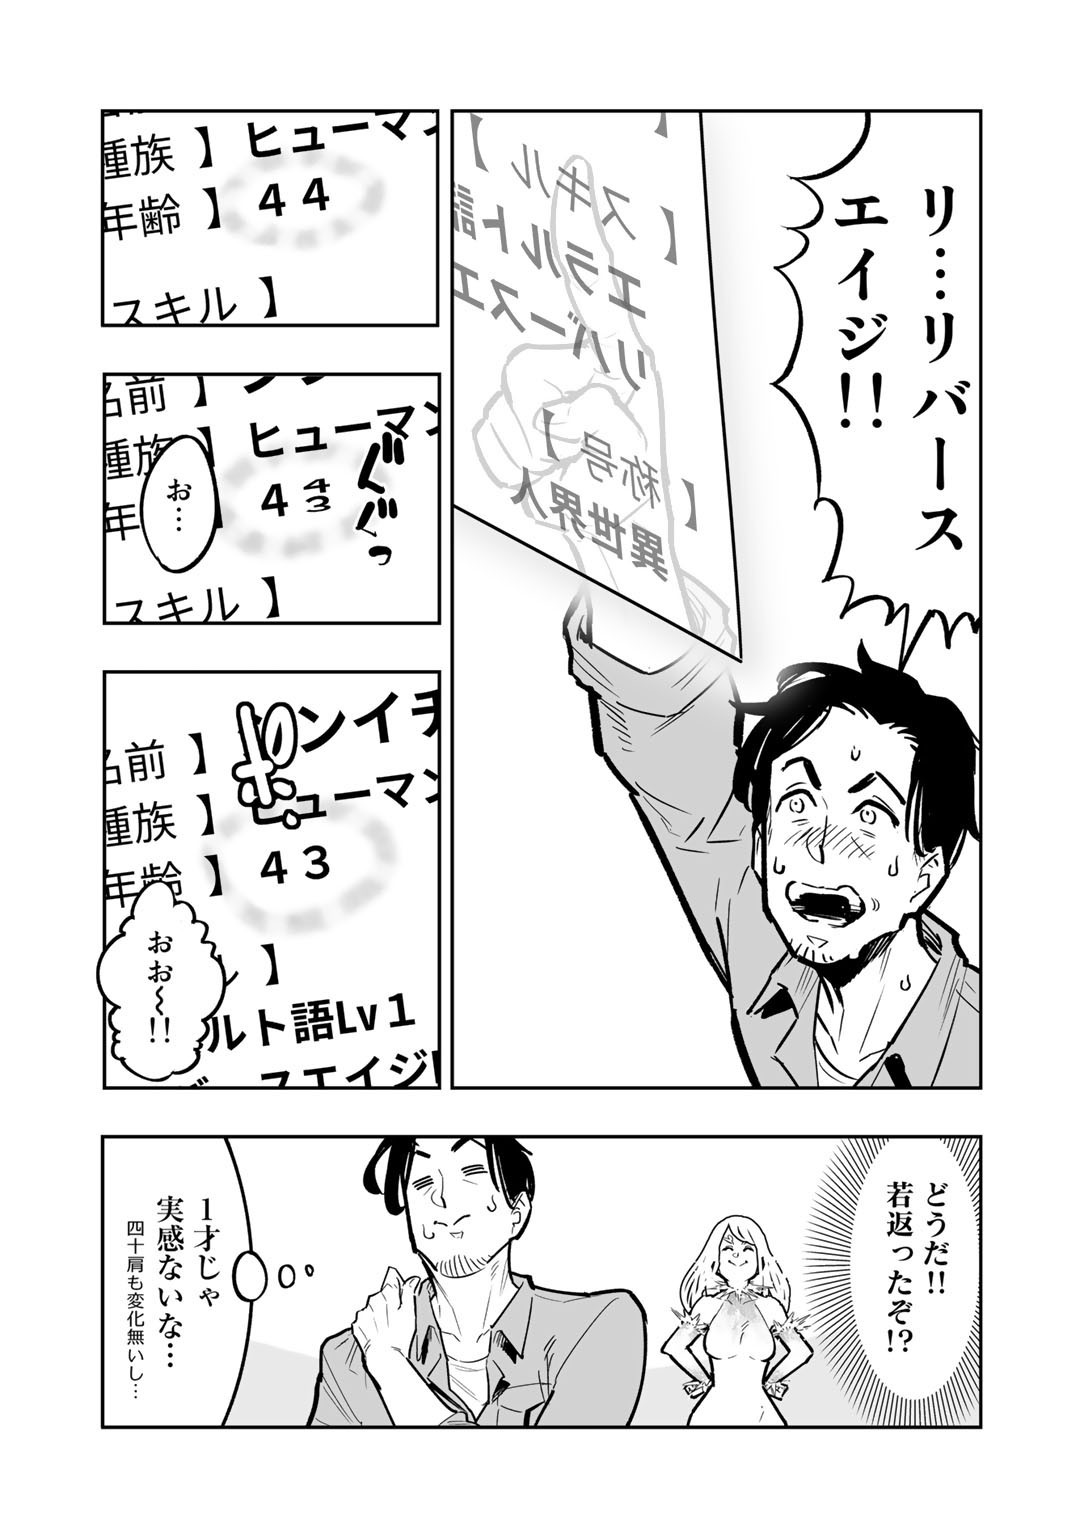 リ…リバース
エイジ!!
【スキル】
エラルト語
リバースエ
【称号】
異世界人
種族 】ヒューマン
年齢 】４４
スキル 】
名前 】
種族 】ヒューマン
年
４
４
３
スキル 】
お…
ぐぐっ
ンイチ
名前 】
種族 】ヒューマン
年齢 】４３
ル 】
ルト語Lv１
スエイジ
ポーン
おお〜!!
どうだ!!
若返ったぞ!?
１才じゃ
実感ないな…
四十肩も変化無いし…